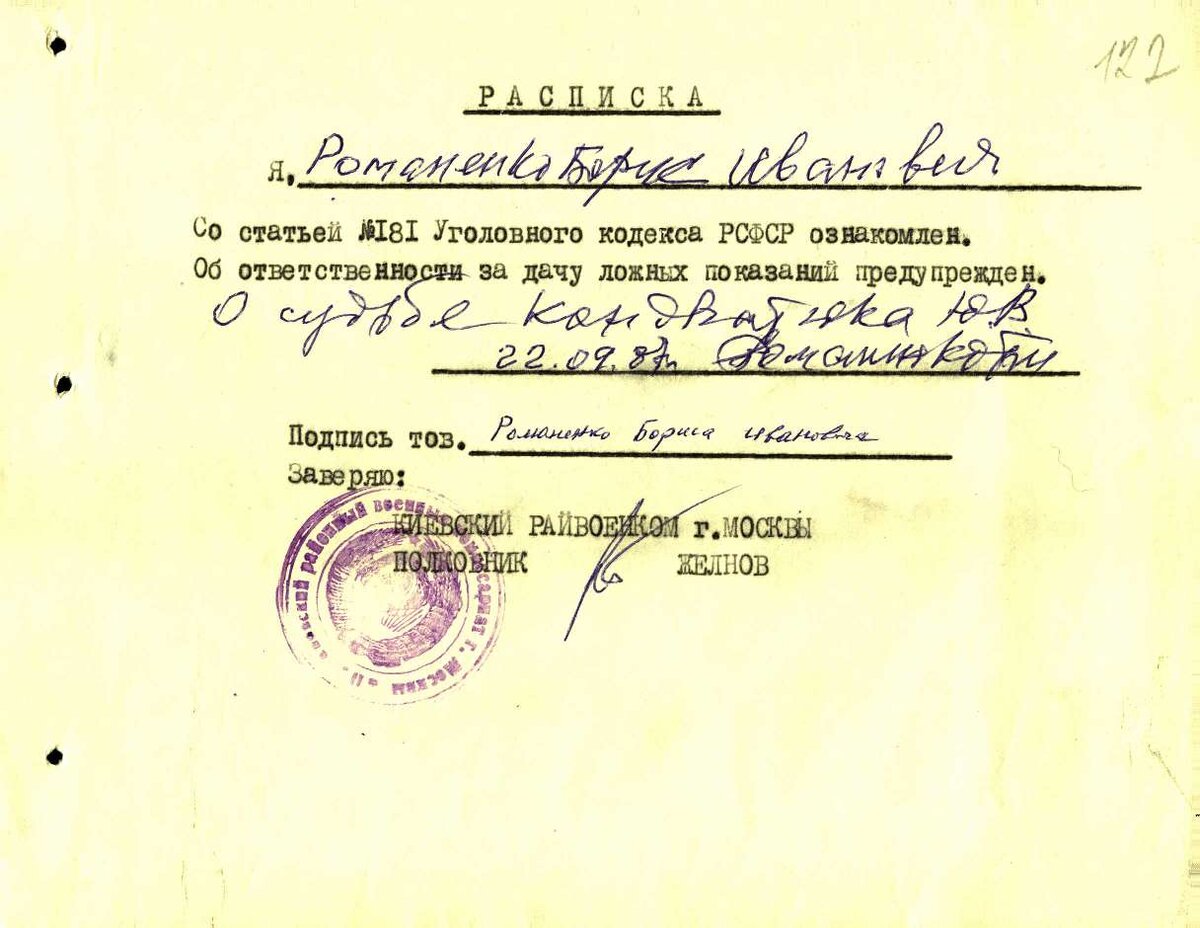 122
РАСПИСКА
Я, Романенко Борис Иванович
Со статьей №181 Уголовного кодекса РСФСР ознакомлен.
Об ответственности за дачу ложных показаний предупрежден.
О судьбе Кондратюка Ю.В.
22.09.87г. Романенко Б.И.
Подпись тов. Романенко Бориса Ивановича
Заверяю:
КИЕВСКИЙ РАЙВОЕНКОМ г.МОСКВЫ
ПОЛКОВНИК ЖЕЛНОВ
районный военный комиссариат г. Москвы